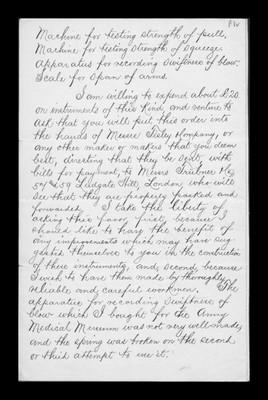 Machine for testing strength of pull.
Machine for testing strength of squeeze.
Apparatus for recording swiftness of blow.
Scale for span of arms.
I am willing to expend about £20
on instruments of this kind, and venture to
ask that you will put this order into
the hands of Messrs Tisley & Company, or
any other maker or makers that you deem
best, directing that they be sent, with
bills for payment, to Messrs Trübner & Co,
57 & 59 Ludgate Hill, London who will
see that they are properly packed and
forwarded. I take the liberty of
asking this favor first, because I
should like to have the benefit of
any improvements which may have sug-
gested themselves to you in the construction
of these instruments, and second, because
I wish to have them made by thoroughly
reliable and careful workmen. The
apparatus for recording swiftness of
blow which I bought for the Army
Medical Museum was not very well made,
and the spring was broken on the second
or third attempt to use it.